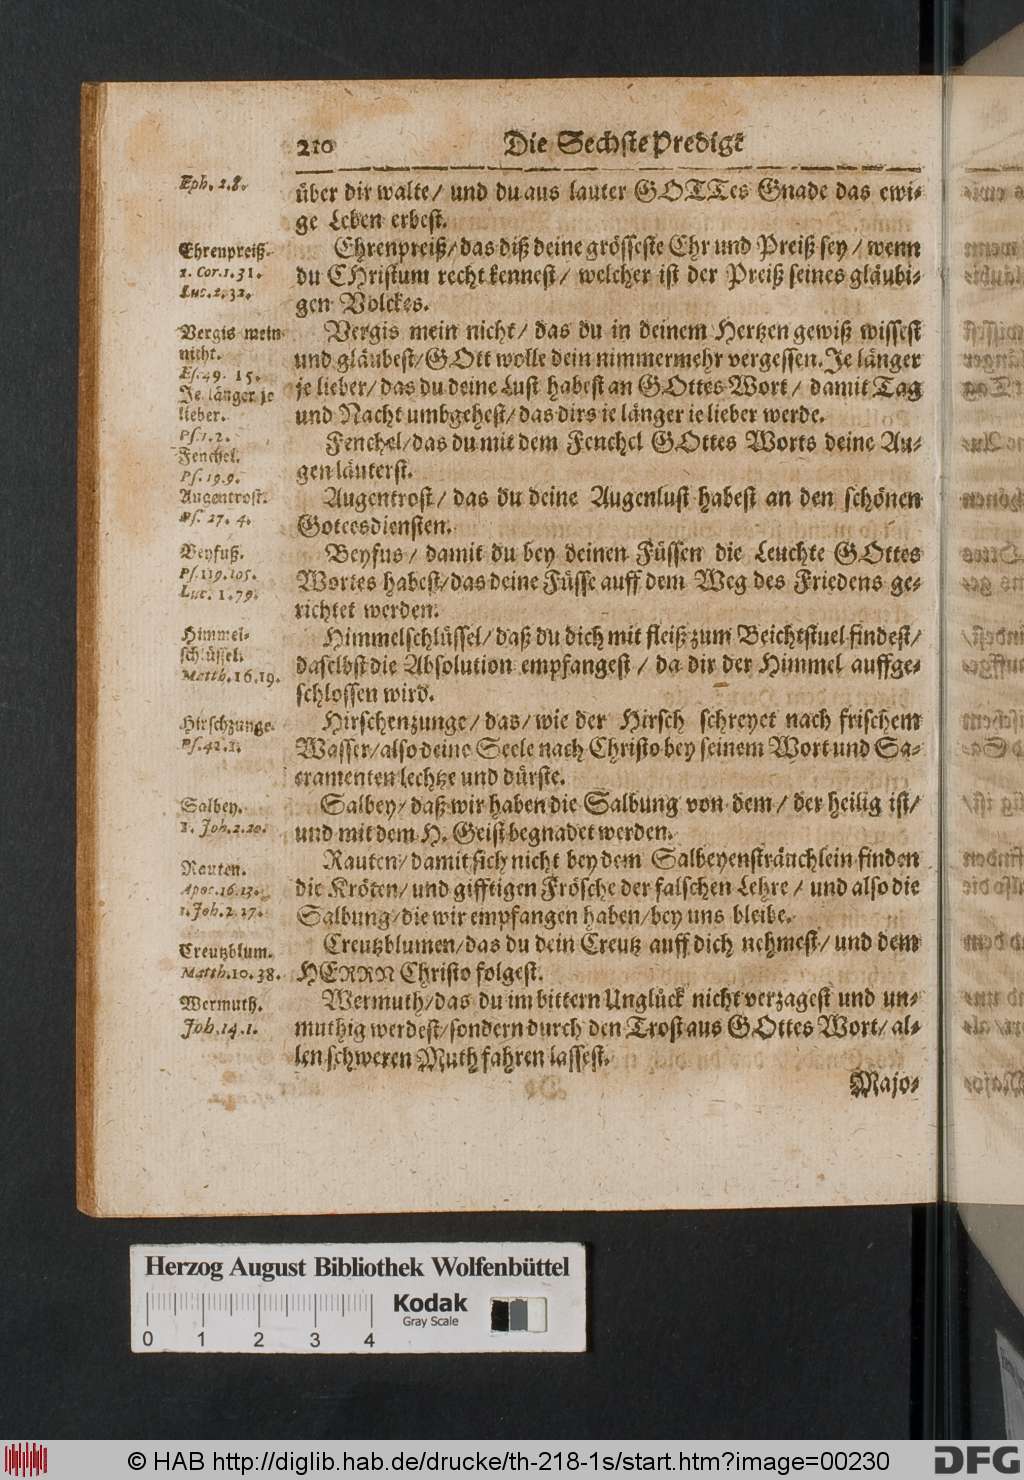 210 Die Sechste Predigt
über dir walte/ und du aus lauter GOTTes Gnade das ewi-
ge Leben erbest.
Ehrenpreiß/ das diß deine grösseste Ehr und Preiß sey/ wenn
du CHristum recht kennest/ welcher ist der Preiß seines gläubi-
gen Volckes.
Vergis mein nicht/ das du in deinem Hertzen gewiß wissest
und gläubest/ GOtt wolle dein nimmermehr vergessen. Je länger
je lieber/ das du deine Lust habest an GOttes Wort/ damit Tag
und Nacht umbgehest/ das dirs ie länger ie lieber werde.
Fenchel/ das du mit dem Fenchel GOttes Worts deine Au-
gen läuterst.
Augentrost/ das du deine Augenlust habest an den schönen
Gottesdiensten.
Beyfus/ damit du bey deinen Füssen die Leuchte GOttes
Wortes habest/ das deine Füsse auff dem Weg des Friedens ge-
richtet werden.
Himmelschlüssel/ daß du dich mit fleiß zum Beichtstuel findest/
daselbst die Absolution empfangest/ da dir der Himmel auffge-
schlossen wird.
Hirschenzunge/ das/ wie der Hirsch schreyet nach frischem
Wasser/ also deine Seele nach Christo bey seinem Wort und Sa-
cramenten lechtze und dürste.
Salbey/ daß wir haben die Salbung von dem/ der heilig ist/
und mit dem H. Geist begnadet werden.
Rauten/ damit sich nicht bey dem Salbeyensträuchlein finden
die Kröten/ und gifftigen Frösche der falschen Lehre/ und also die
Salbung/ die wir empfangen haben/ bey uns bleibe.
Creutzblumen/ das du dein Creutz auff dich nehmest/ und dem
HERRN Christo folgest.
Wermuth/ das du im bittern Unglück nicht verzagest und un-
muthig werdest/ sondern durch den Trost aus GOttes Wort/ al-
len schweren Muth fahren lassest.
Majo-
Eph. 2.8.
Ehrenpreiß.
1. Cor. 1.31.
Luc. 2.32.
Vergis mein
nicht.
Es. 49. 15.
Je länger je
lieber.
Ps. 1.2.
Fenchel.
Ps. 19.9.
Augentrost.
Ps. 27. 4.
Beyfuß.
Ps. 119.105.
Luc. 1.79.
Himmel-
schlüssel.
Matth. 16.19.
Hirschzunge.
Ps. 42.1.
Salbey.
1. Joh. 2.20.
Rauten.
Apoc. 16.13.
1. Joh. 2 27.
Creutzblum.
Matth. 10.38.
Wermuth.
Joh. 14.1.
Herzog August Bibliothek Wolfenbüttel
Kodak
Gray Scale
0 1 2 3 4
© HAB http://diglib.hab.de/drucke/th-218-1s/start.htm?image=00230
DFG